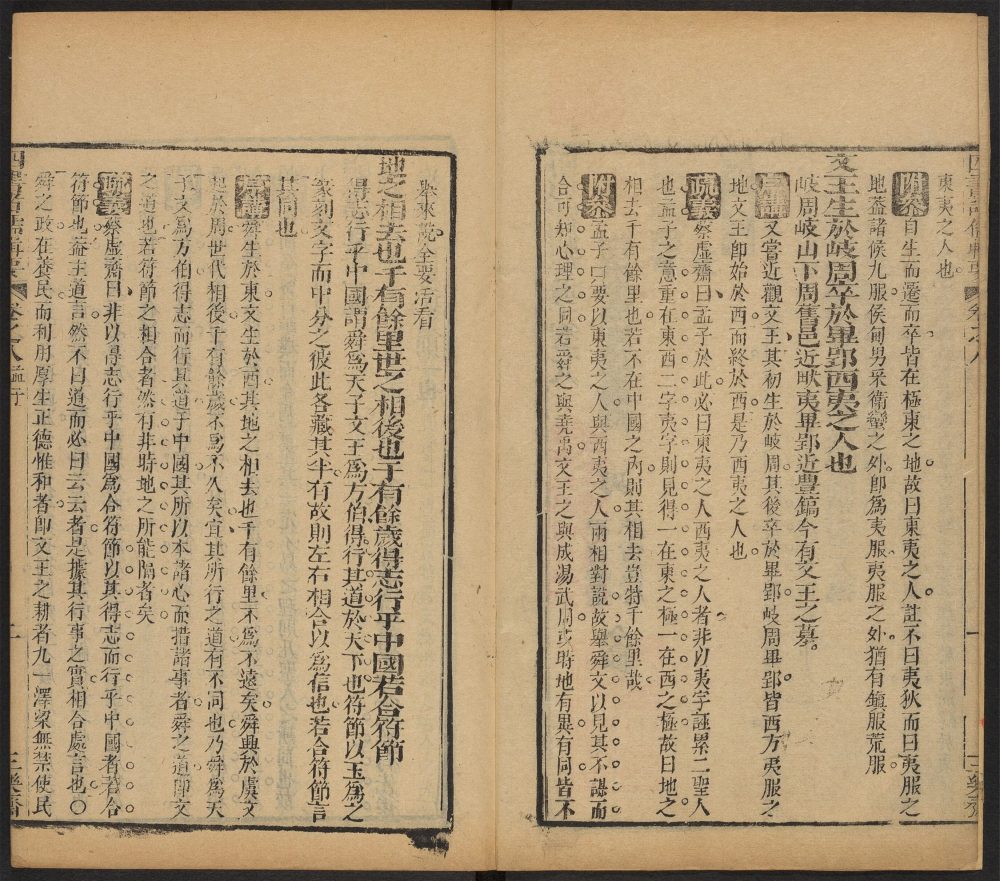 東夷之人也
附叅自生而遷而卒皆在極東之地故曰東夷之人註不曰夷狄而曰夷服之
地葢諸候九服侯甸男采衛蠻之外卽爲夷服夷服之外猶有鎭服荒服
文王生於岐周卒於畢郢西夷之人也
岐周岐山下周舊邑近畎夷畢郢近豊鎬今有文王之墓
講又嘗近觀文王其初生於岐周其後卒於畢郢岐周畢郢皆西方夷服之
地文王卽始於西而終於西是乃西夷之人也
疏義蔡虛齋曰孟子於此必曰東夷之人西夷之人者非以夷字誣累二聖人
也孟子之意重在東西二字夷字則見得一在東之極一在西之極故曰地之
相去千有餘里也若不在中國之內則其相去豈特千餘里哉
附叅孟子口要以東夷之人與西夷之人兩相對說故舉舜文以見其不謀而
合可知心理之同若舜之與堯禹文王之與成湯武周或時地有異有同皆不
來說全要活看
地之相去也千有餘里世之相後也千有餘歲得志行乎中國若合符節
得志行乎中國謂舜爲天子文王爲方伯得行其道於天下也符節以玉爲之
篆刻文字而中分之彼此各藏其半有故則左右相合以爲信也若合符節言
其同也
講舜生於東文生於西其地之相去也千有餘里不爲不遠矣舜興於虞文
起於周世代相後千有餘歲不爲不久矣宜其所行之道有不同也乃舜爲天
子文爲方伯得志而行其道于中國其所以本諸心而措諸事者舜之道卽文
之道也若符節之相合者然有非時地之所能隔者矣
疏義蔡虛齋曰非以得志行乎中國爲合符節以其得志而行乎中國者若合
符節也葢主道言然不曰道而必曰云云者是據其行事之實相合處言也○
舜之政在養民而利用厚生正德惟和者卽文王之耕者九一澤梁無禁使民
卷之八